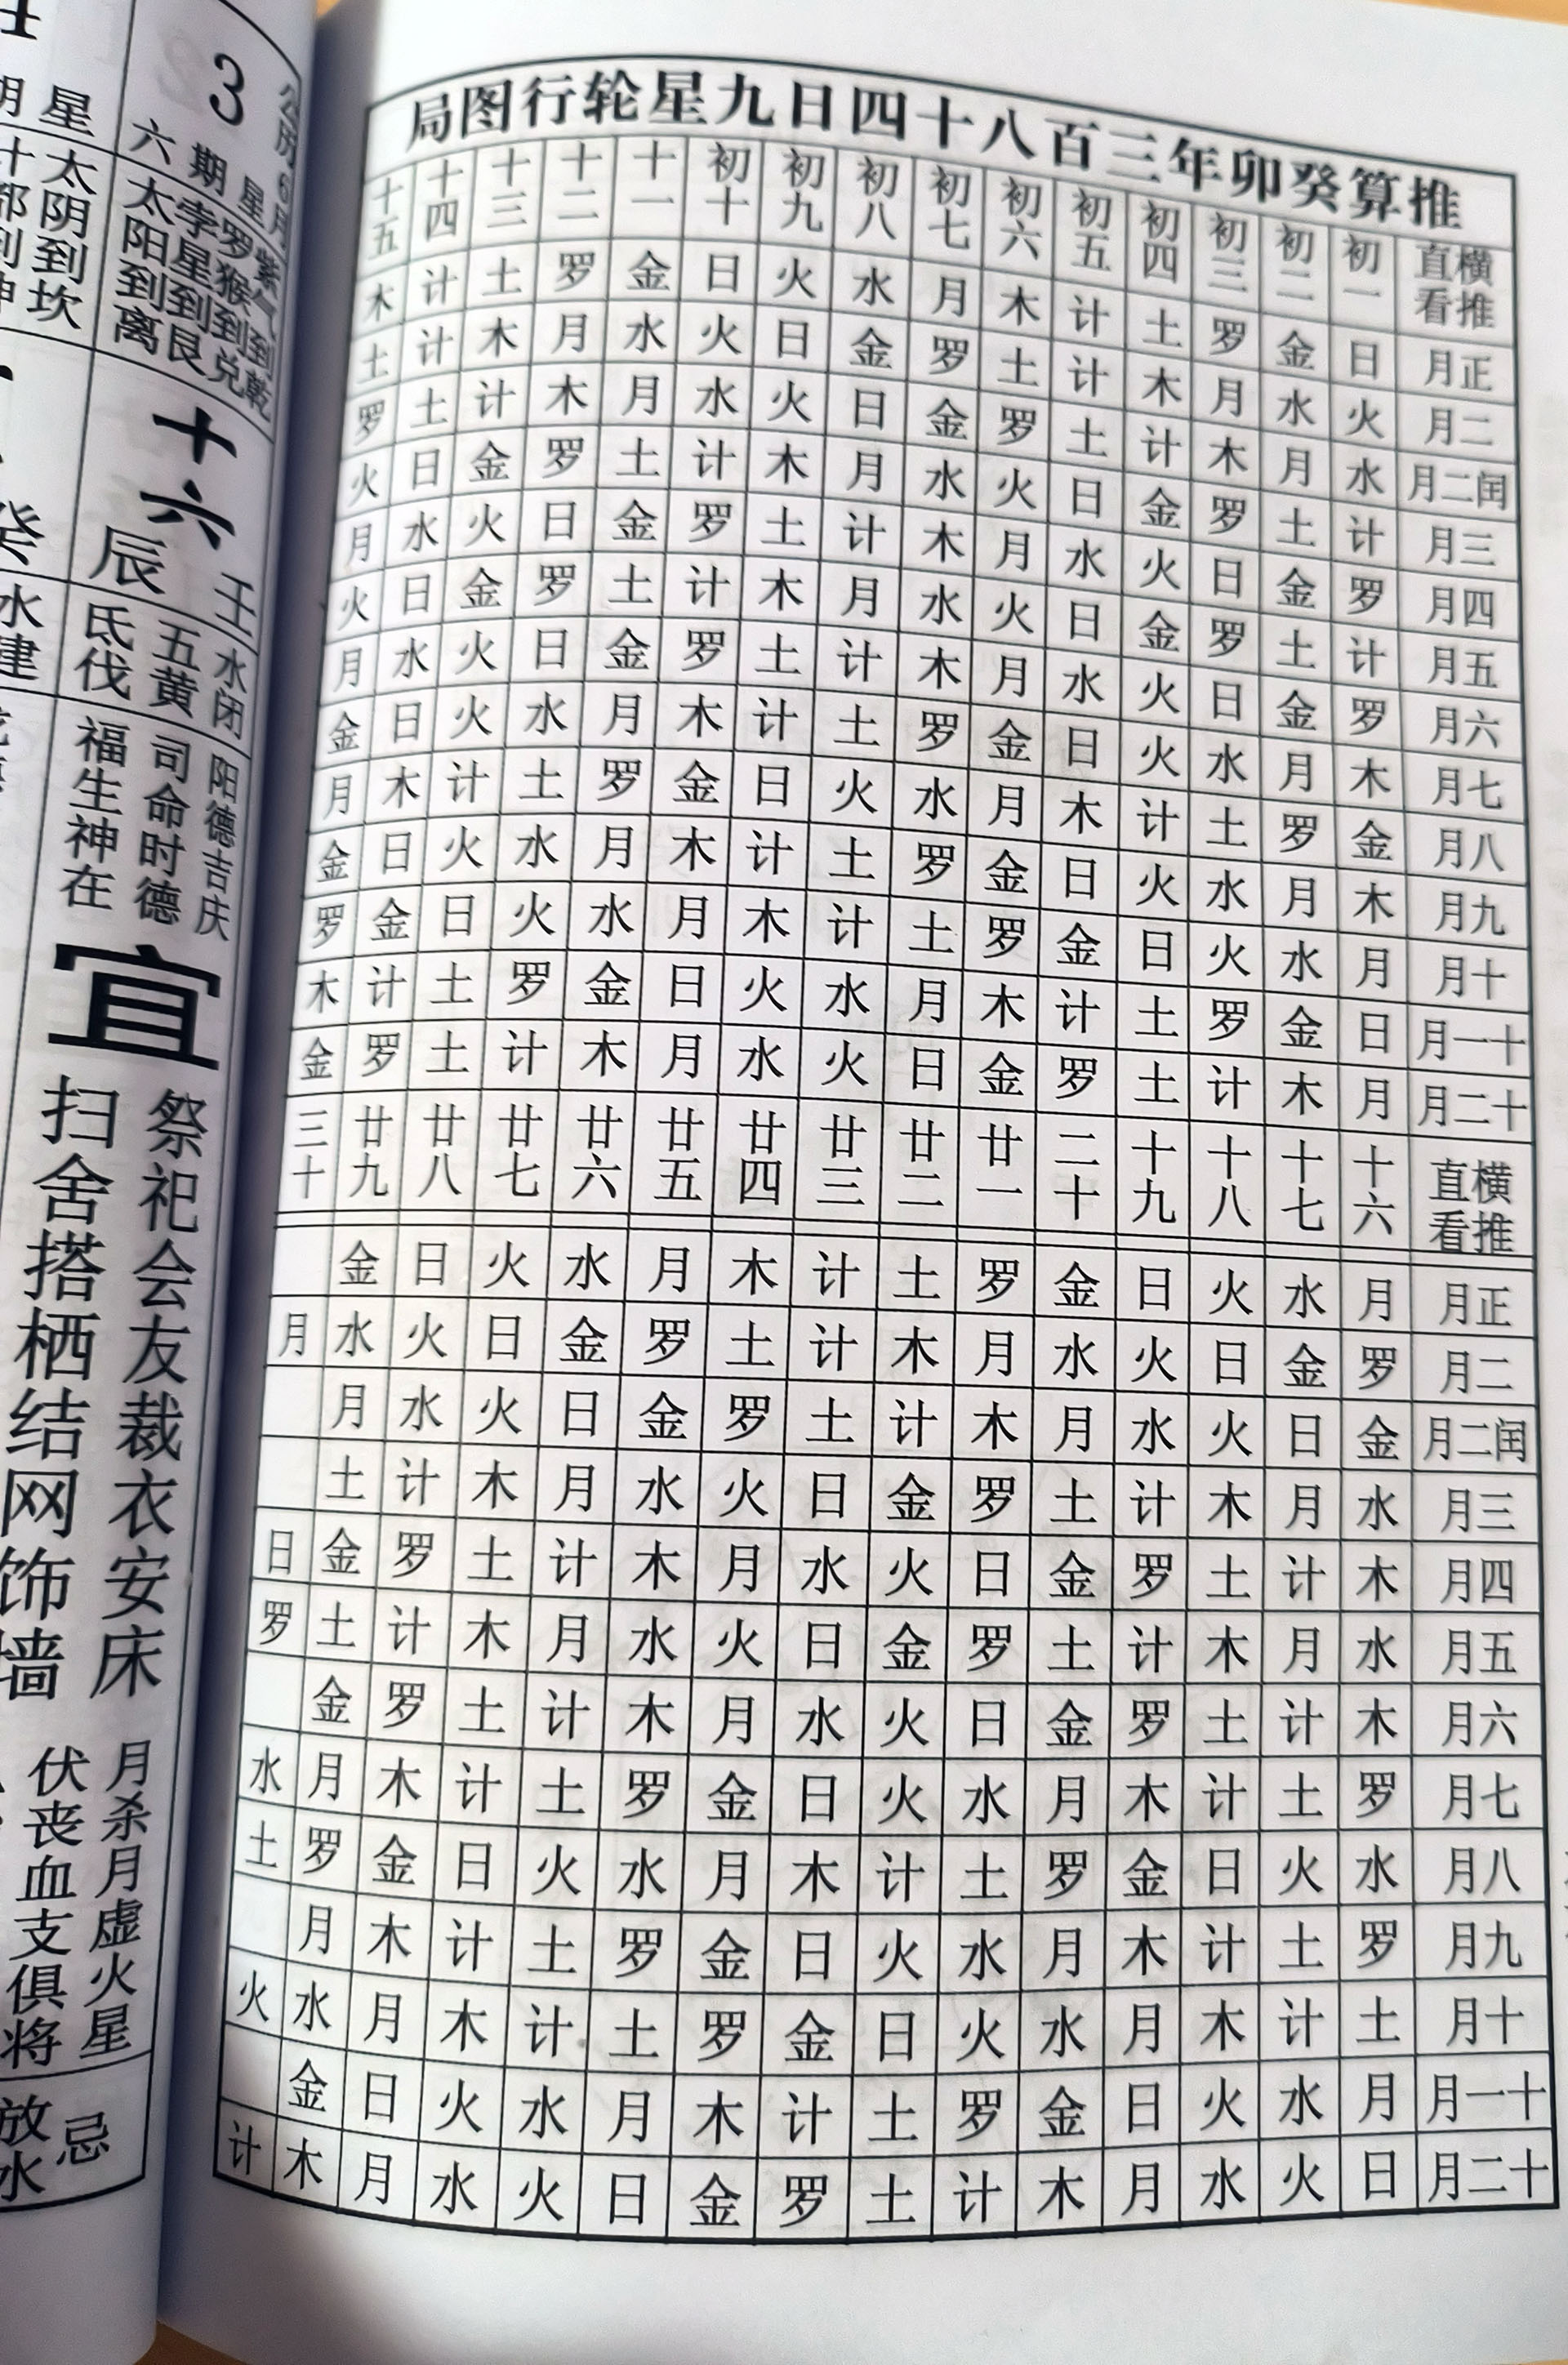 推算癸卯年三百八十四日九星轮行图局
横推直看 初一 初二 初三 初四 初五 初六 初七 初八 初九 初十 十一 十二 十三 十四 十五
正月 日 金 罗 土 计 木 月 水 火 日 金 罗 土 计 木
二月 火 水 月 木 计 土 罗 金 日 火 水 月 木 计 土
闰二月 水 月 木 计 土 罗 金 日 火 水 月 木 计 土 罗
三月 计 土 罗 金 日 火 水 月 木 计 土 罗 金 日 火
四月 罗 金 日 火 水 月 木 计 土 罗 金 日 火 水 月
五月 计 土 罗 金 日 火 水 月 木 计 土 罗 金 日 火
六月 罗 金 日 火 水 月 木 计 土 罗 金 日 火 水 月
七月 木 月 水 火 日 金 罗 土 计 木 月 水 火 日 金
八月 金 罗 土 计 木 月 水 火 日 金 罗 土 计 木 月
九月 木 月 水 火 日 金 罗 土 计 木 月 水 火 日 金
十月 月 水 火 日 金 罗 土 计 木 月 水 火 日 金 罗
十一月 日 金 罗 土 计 木 月 水 火 日 金 罗 土 计 木
十二月 月 木 计 土 罗 金 日 火 水 月 木 计 土 罗 金
横推直看 十六 十七 十八 十九 二十 廿一 廿二 廿三 廿四 廿五 廿六 廿七 廿八 廿九 三十
正月 月 水 火 日 金 罗 土 计 木 月 水 火 日 金
二月 罗 金 日 火 水 月 木 计 土 罗 金 日 火 水 月
闰二月 金 日 火 水 月 木 计 土 罗 金 日 火 水 月
三月 水 月 木 计 土 罗 金 日 火 水 月 木 计 土
四月 木 计 土 罗 金 日 火 水 月 木 计 土 罗 金 日
五月 水 月 木 计 土 罗 金 日 火 水 月 木 计 土 罗
六月 木 计 土 罗 金 日 火 水 月 木 计 土 罗 金
七月 罗 土 计 木 月 水 火 日 金 罗 土 计 木 月 水
八月 水 火 日 金 罗 土 计 木 月 水 火 日 金 罗 土
九月 罗 土 计 木 月 水 火 日 金 罗 土 计 木 月
十月 土 计 木 月 水 火 日 金 罗 土 计 木 月 水 火
十一月 月 水 火 日 金 罗 土 计 木 月 水 火 日 金
十二月 日 火 水 月 木 计 土 罗 金 日 火 水 月 木 计
公历6月
3
星期六
紫气到乾
罗猴到兑
孛星到艮
太阳到离
十六
壬
辰
水闭
五黄
氐伐
阳德吉庆
司命时德
福生神在
宜
祭祀会友裁衣安床
扫舍搭栖结网饰墙
月杀月虚火星
伏丧血支俱将
忌
放水
星
太阴到坎
癸
水建